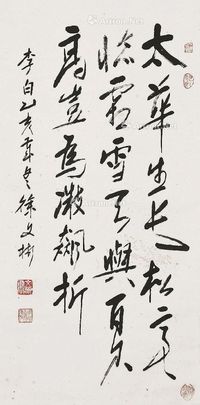 太華生長松亭亭
凌霜雪天與百尺
高豈為微飆折
李白乙亥年冬徐文彬